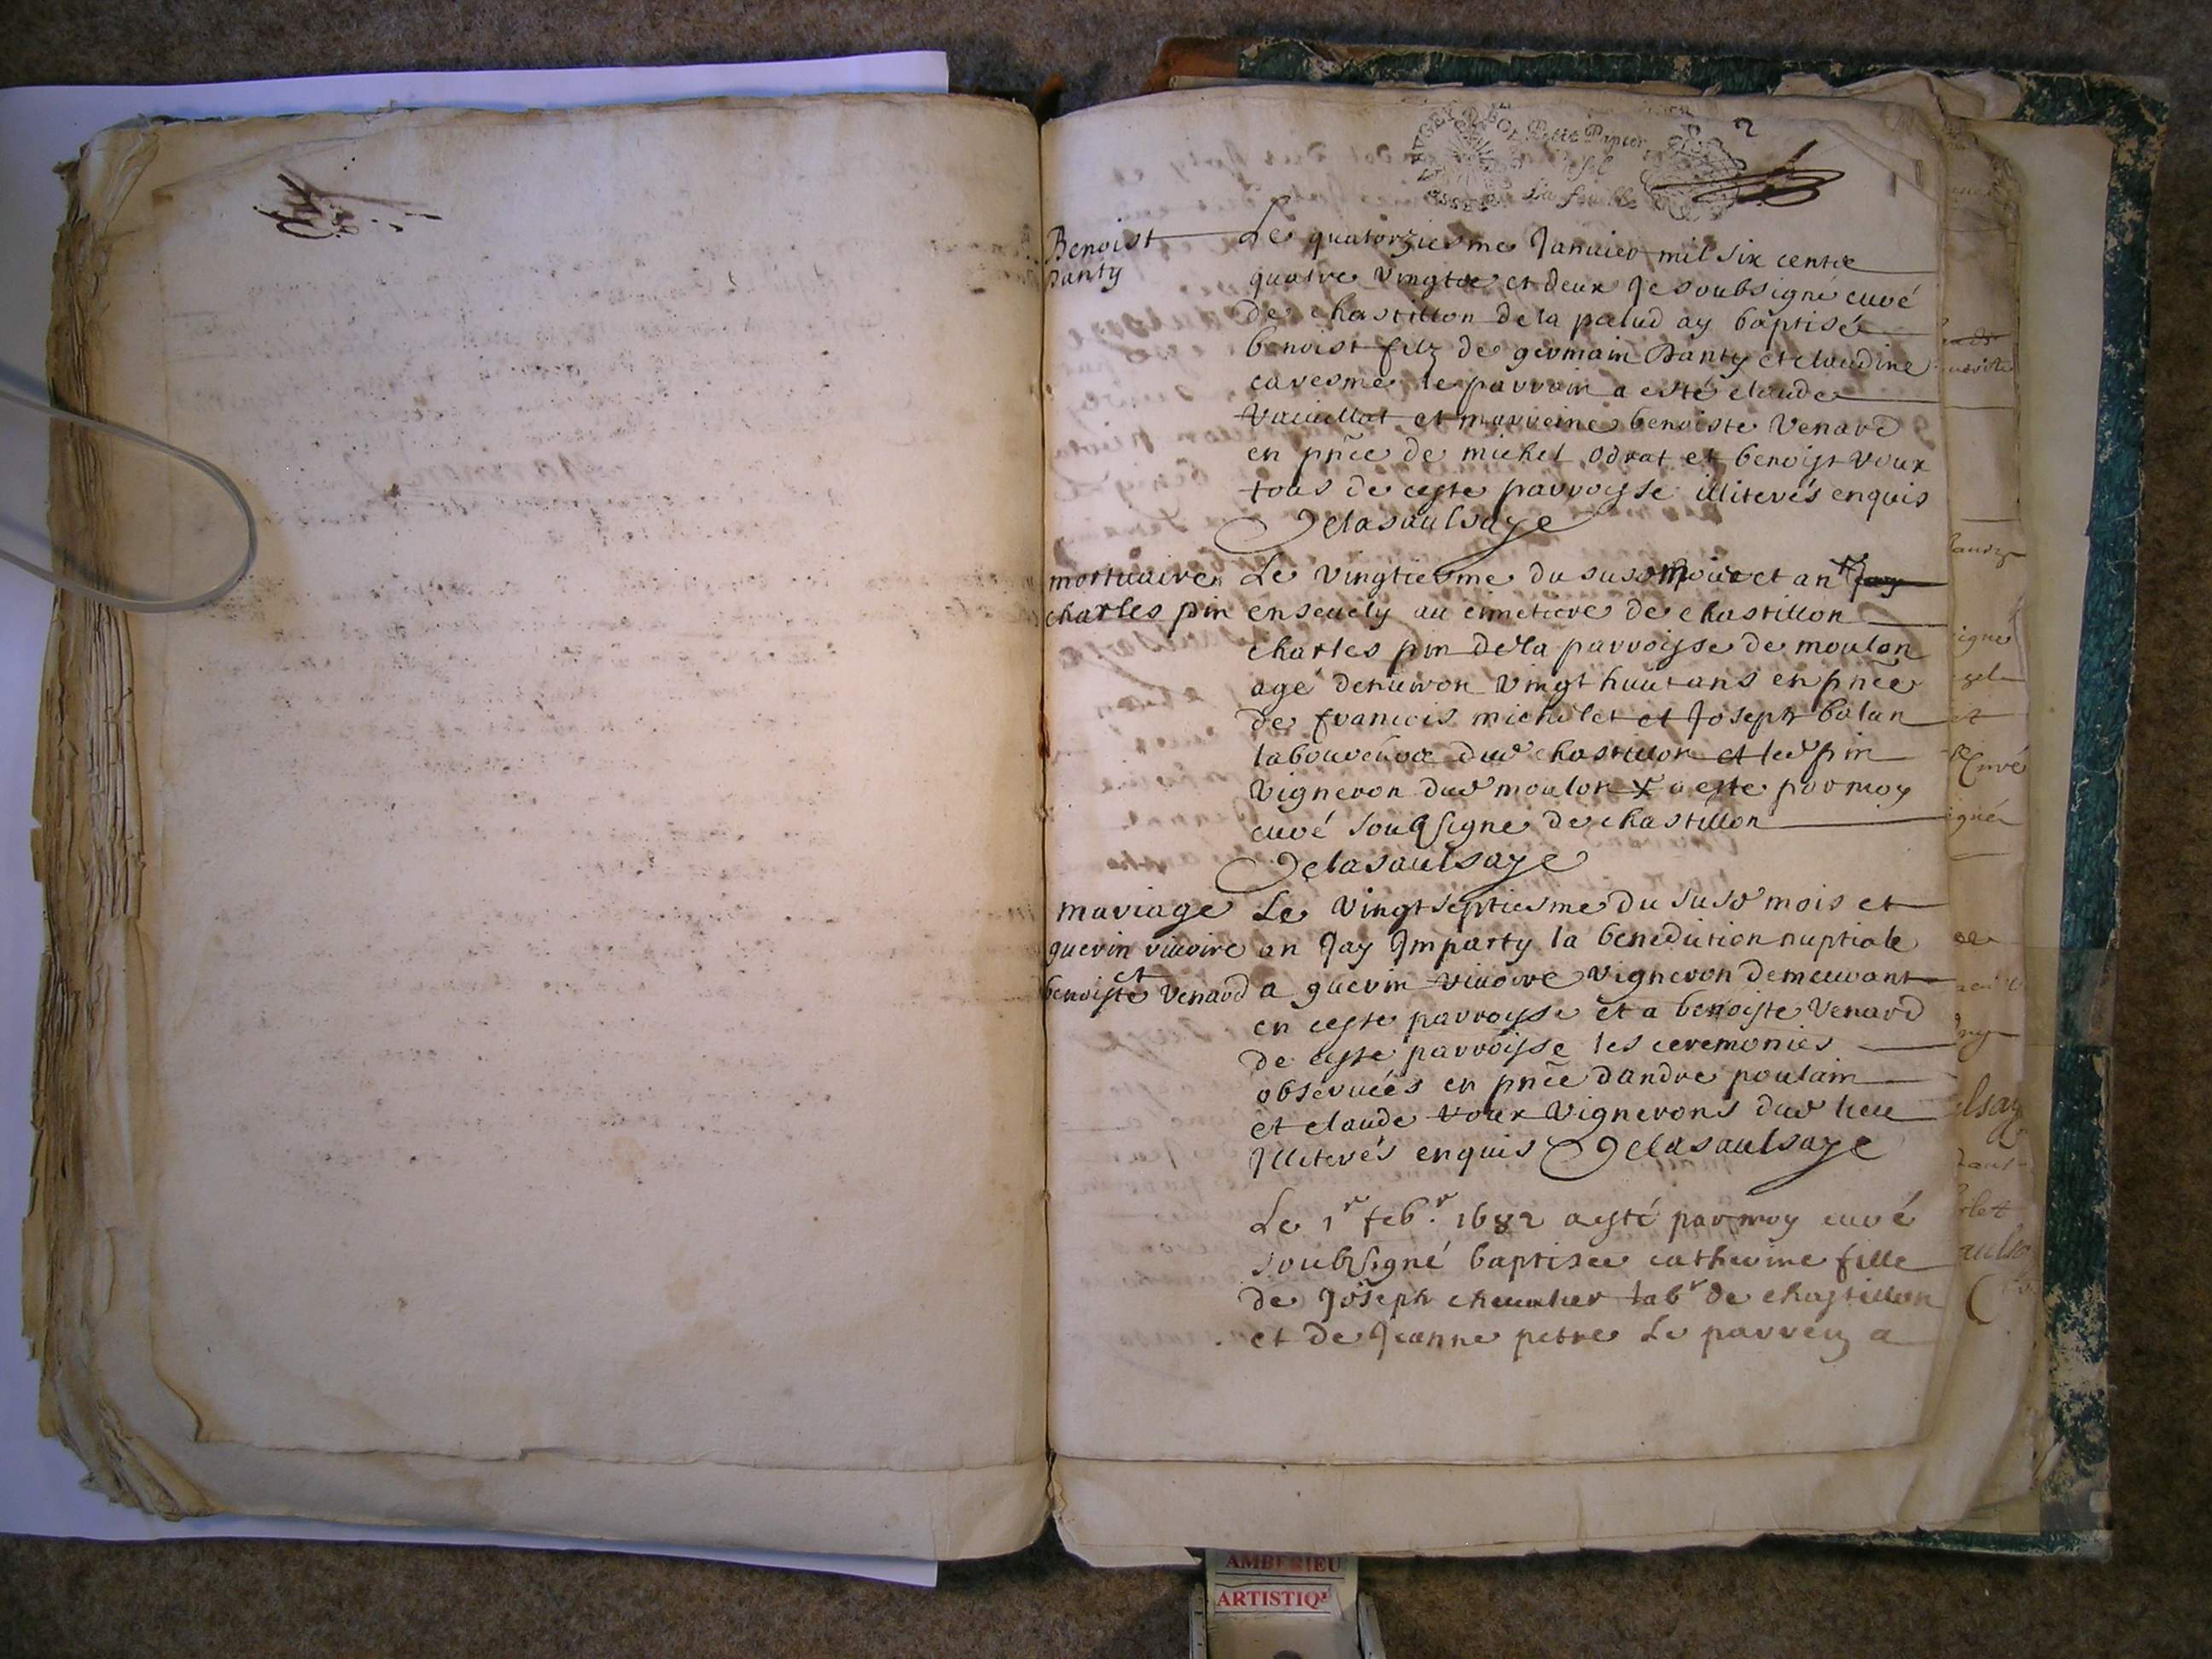 2
Petit Papier
La feuille
Benoist
Danty
Le quatorziesme Januier mil six centz
quatre vingtz et deux Je soubsigné curé
de chastillon de la palud ay baptisé
benoist filz de germain Danty et claudine
caresme le parrain a esté claude
Vauillat et marreine benoiste Venard
en pñce de michel odrat et benoist voux
tous de ceste parroysse illiterés enquis
Delasaulsaye
mortuaire
charles pin
Le vingtiesme du susd mois et an Jay
enseuely au cimetiere de chastillon
charles pin de la parroysse de moulon
agé denuiron vingt huit ans en pñce
de francois michelet et Joseph balan
laboureurs dud chastillon et led pin
vigneron dud moulon x a esté par moy
curé soubsigne de chastillon
Delasaulsaye
mariage
guerin viuoire
et
benoiste Venard
Le vingtseptiesme du susd mois et
an Jay Jmparty la benediction nuptiale
a guerin viuoire vigneron demeurant
en ceste parroysse et a benoiste Venard
de ceste parroysse les ceremonies
obseruées en pñce dandre poulain
et claude voux vignerons dud lieu
Jlliterés enquis Delasaulsaye
Le 1r febr. 1682 a esté par moy curé
soubsigné baptisee catherine fille
de Joseph cheualier labr de chastillon
et de Jeanne petre Le parrein a
AMBERIEU
ARTISTIQ